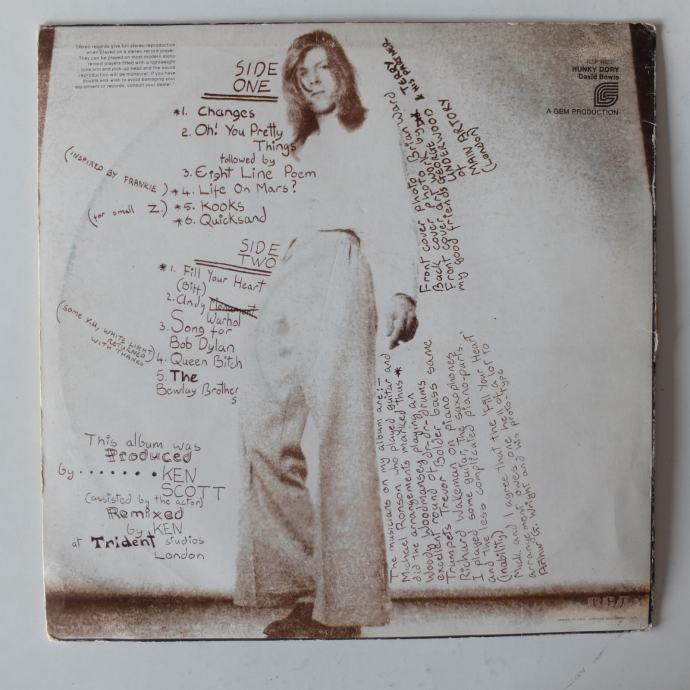 Stereo records give full stereo reproduction
when played on a stereo record player.
They can be played on most modern many
record players fitted with a lightweight
tone arm and pick-up head and the sound
reproduction will be monaural. If you have
doubts and wish to avoid damaging your
equipment or records, consult your dealer.
SIDE
ONE
*1. Changes
2. Oh! You Pretty
Things
followed by
3. Eight Line Poem
(INSPIRED BY FRANKIE) *4. Life On Mars?
(for small Z.) *5. Kooks
*6. Quicksand
SIDE
TWO
*1. Fill Your Heart
(Biff)
2. Andy
Warhol
3. Song for
Bob Dylan
(SOME V.U. WHITE LIGHT
RETURNED
WITH THANKS)
4. Queen Bitch
5. The
Bewlay Brothers
This album was
Produced
by ....... KEN
SCOTT
(assisted by the actor)
Remixed
by KEN
at Trident studios
London
HUNKY DORY
David Bowie
A GEM PRODUCTION
Front cover photo Brian Ward
Back cover photo work by
& HIS PARTNER
Front cover art GEORGE UNDERWOOD
my good friends
of
MAIN ARTORY
(LONDON)
TERRY
The musicians on my album are:-
Michael Ronson who played guitar and
did the arrangements marked thus *
Woody Woodmansey playing an
excellent round of dr-dr-drums
Trevor Bolder bass same
Trumpets
Richard Wakeman on piano
I played some guitar, the saxophones
and the less complicated piano-parts,
(inability)
Mick and I agree that the 'Fill Your Heart'
arrangement owes one hell of a lot to
Arthur G. Wright and his prototype